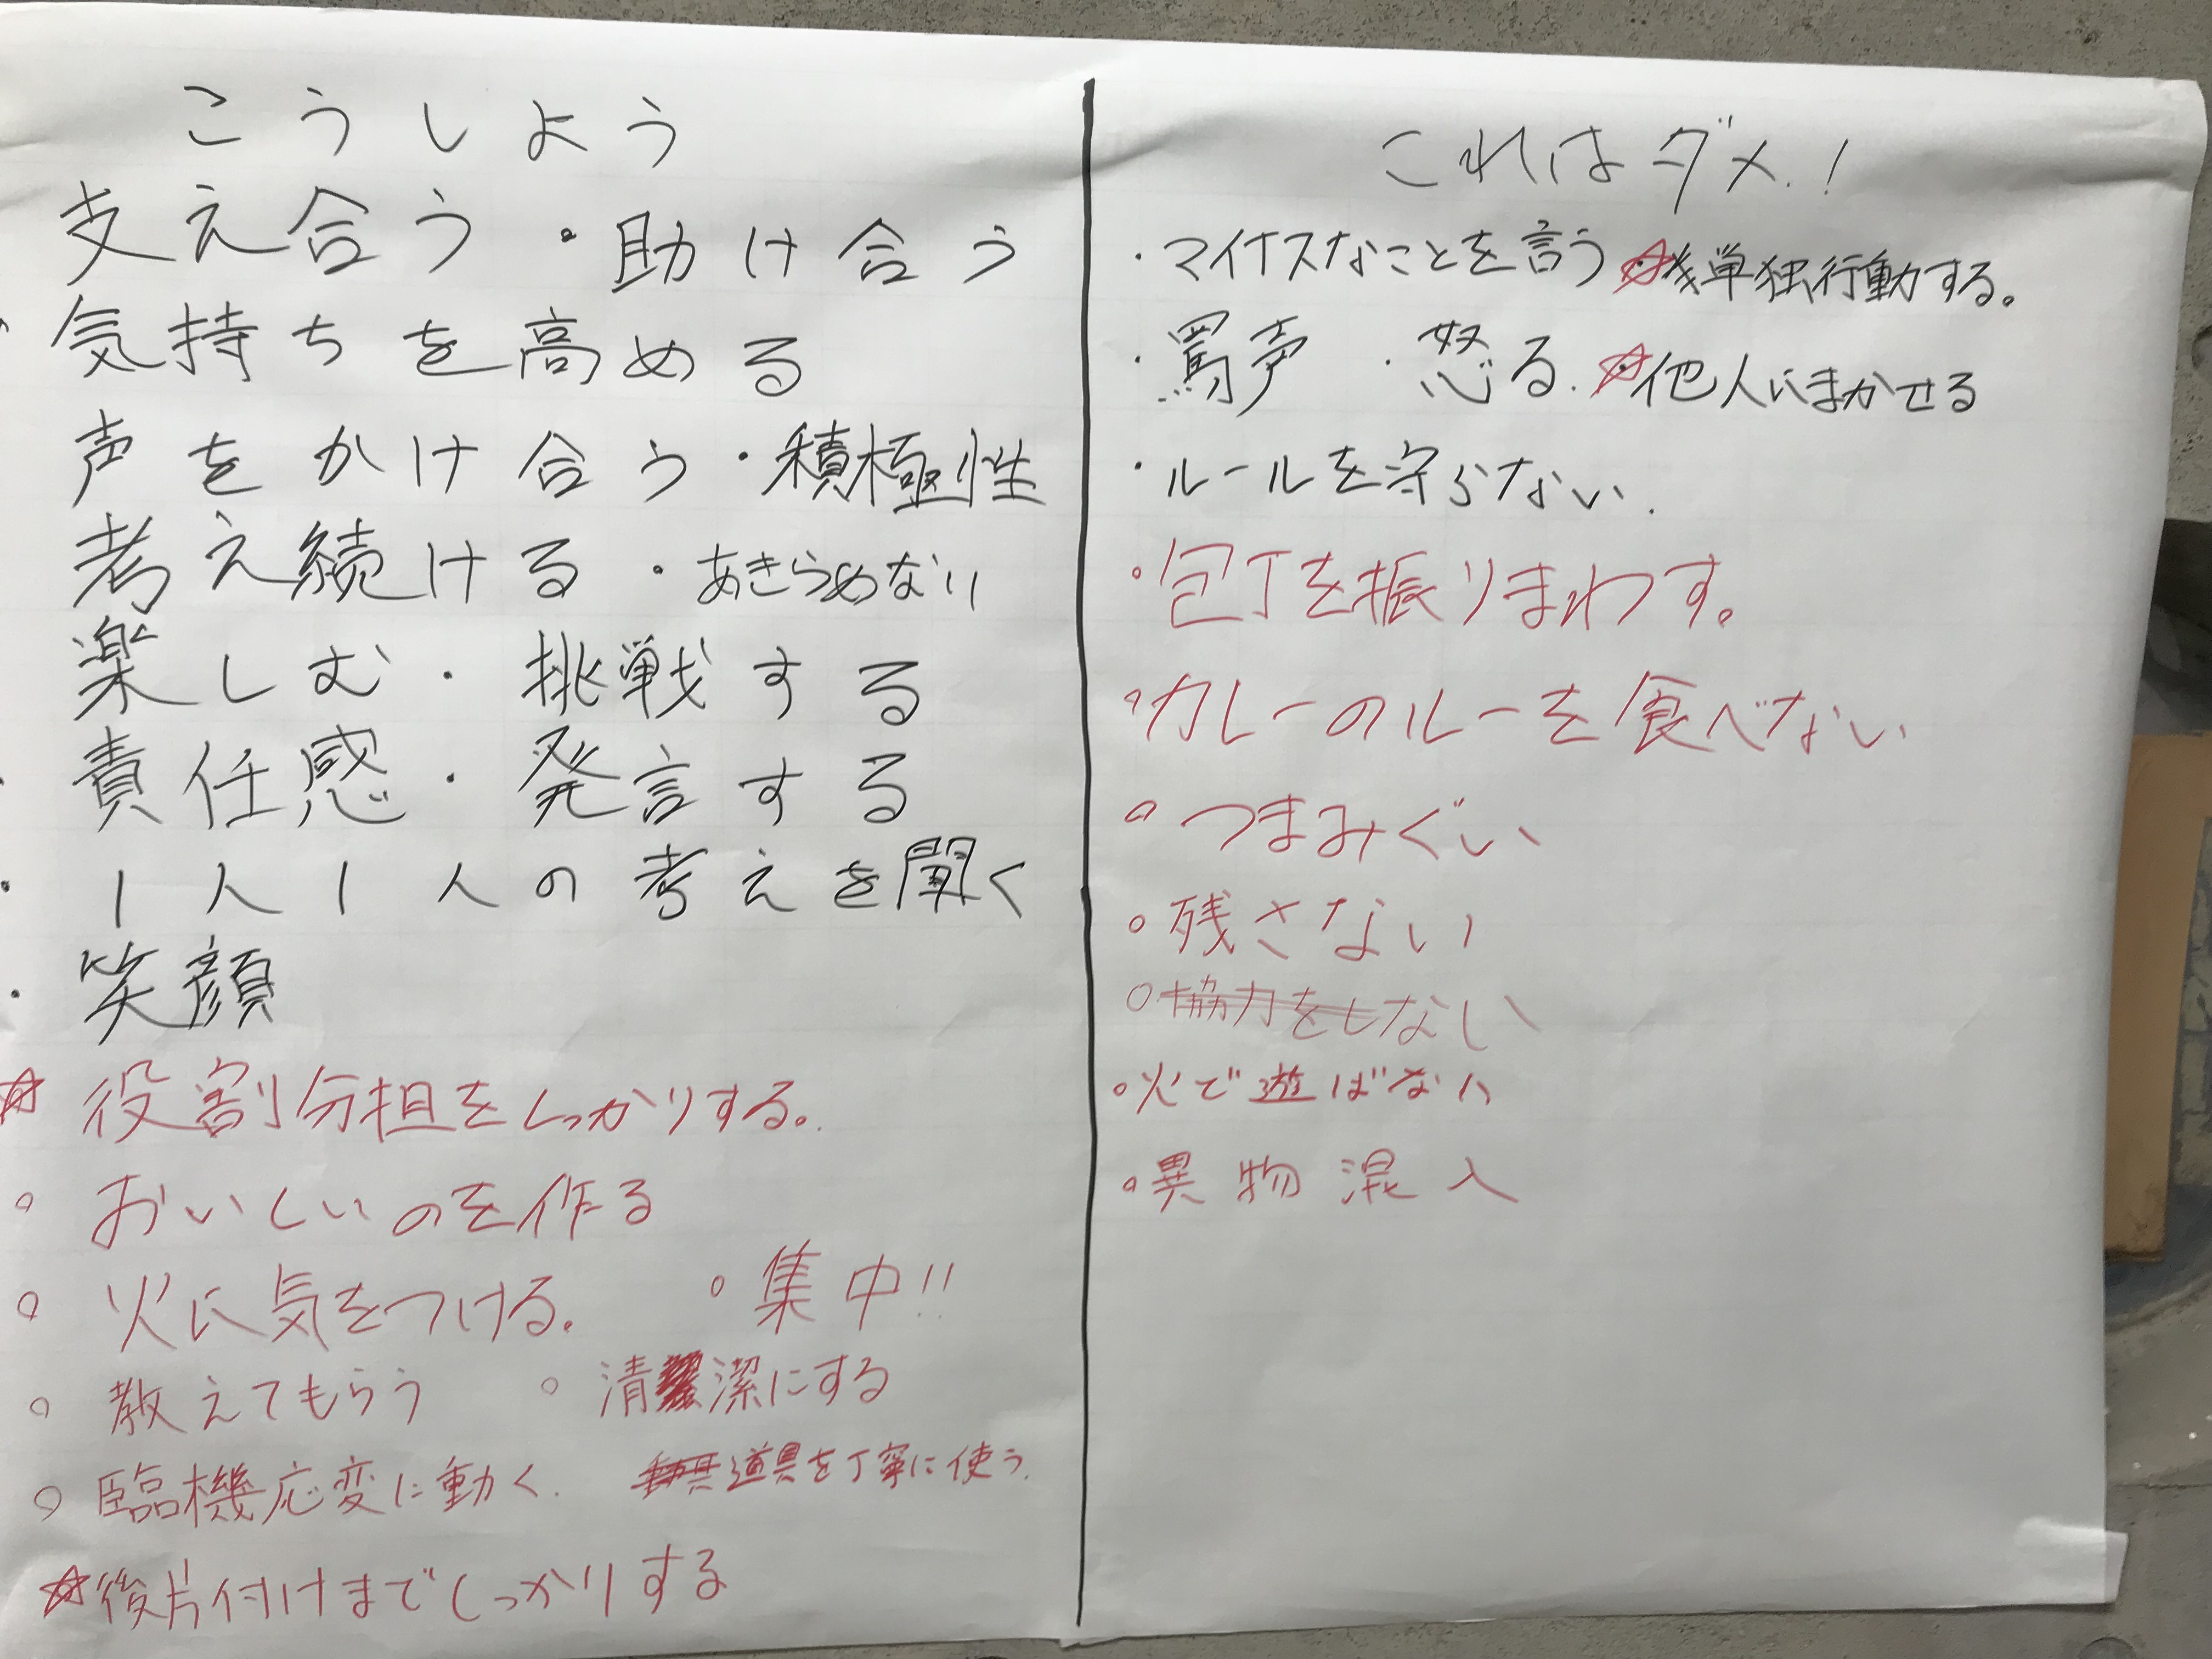 こうしよう
支え合う ・助け合う
気持ちを高める
声をかけ合う ・積極性
考え続ける ・あきらめない
楽しむ ・挑戦する
・責任感 ・発言する
・1人1人の考えを聞く
・笑顔
☆役割分担をしっかりする。
○おいしいのを作る
○火に気をつける。 ○集中!!
○教えてもらう ○清潔にする
○臨機応変に動く. 道具を丁寧に使う.
☆後片付けまでしっかりする
これはダメ!
・マイナスなことを言う ☆単独行動する。
・罵声 ・怒る. ☆他人にまかせる
・ルールを守らない.
・包丁を振りまわす。
○カレーのルーを食べない
○つまみぐい
○残さない
○協力をしない
○火で遊ばない
○異物混入